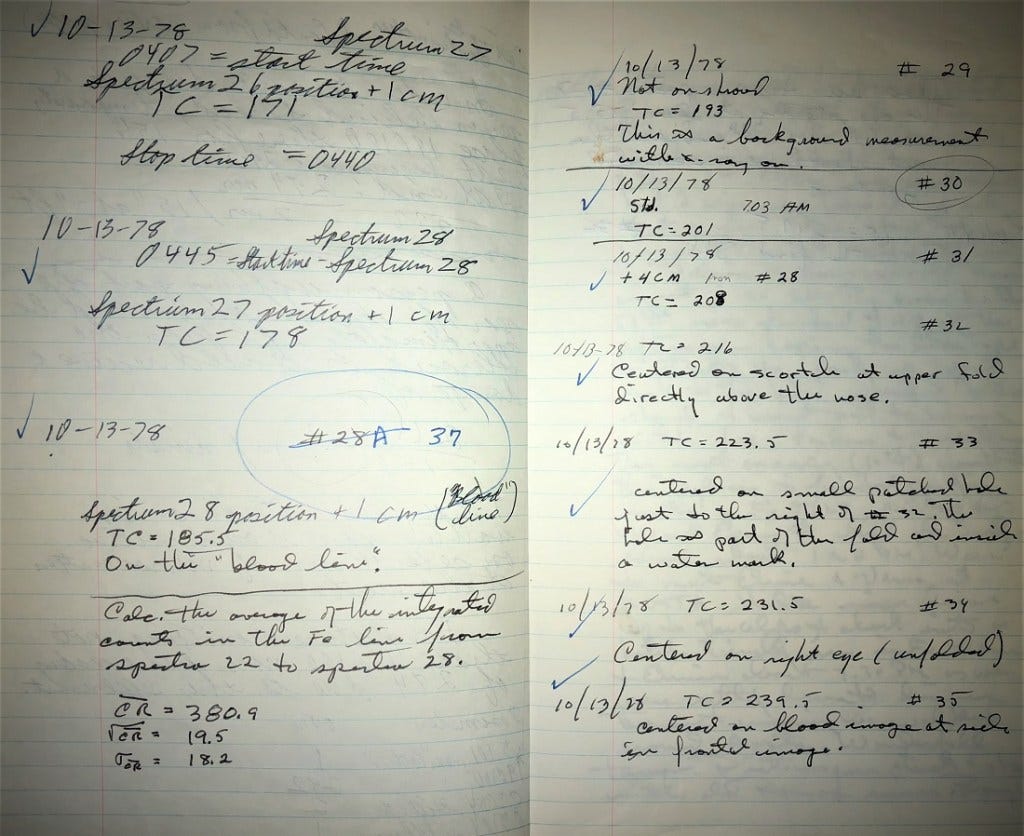 10-13-78 Spectrum 27
0407 = start time
Spectrum 26 position + 1 cm
TC = 171
Stop time = 0440
10-13-78 Spectrum 28
0445 = Start time - Spectrum 28
Spectrum 27 position + 1 cm
TC = 178
10-13-78 #28A 37
Spectrum 28 position + 1 cm ("blood" line)
TC = 185.5
On the "blood line".
Calc. the average of the integrated
counts in the Fe line from
spectra 22 to spectra 28.
CR = 380.9
√CR = 19.5
σCR = 18.2
10/13/78 # 29
Not on shroud
TC = 193
This is a background measurement
with x-ray on.
10/13/78 # 30
Std. 7:03 AM
TC = 201
10/13/78 # 31
+ 4 CM from # 28
TC = 208
# 32
10-13-78 TC = 216
Centered on scortch at upper fold
directly above the nose.
10/13/78 TC = 223.5 # 33
centered on small patched hole
just to the right of # 32. The
hole is part of the fold and inside
a water mark.
10/13/78 TC = 231.5 # 34
Centered on right eye (unfolded)
10/13/78 TC = 239.5 # 35
centered on blood image at side
in frontal image.